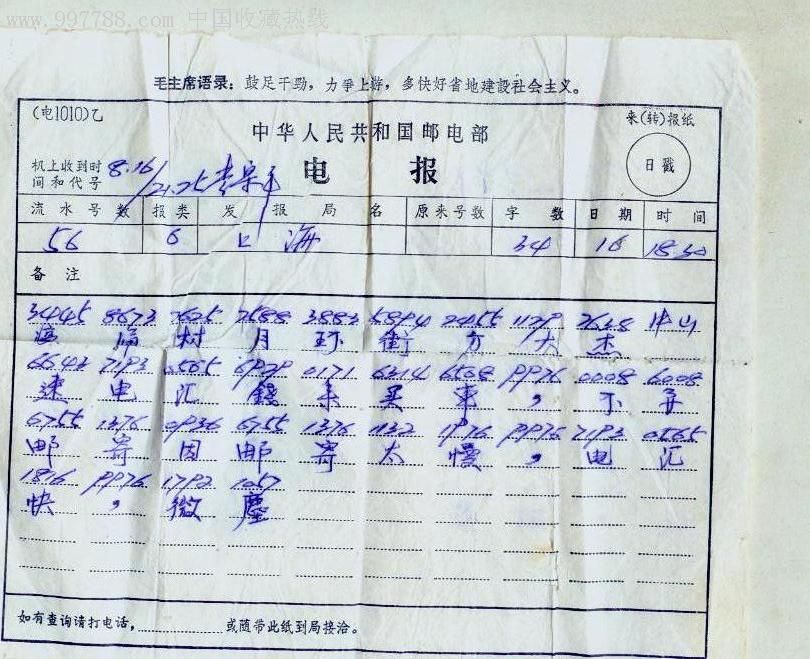 www.997788.com 中国收藏热线
毛主席语录：鼓足干劲，力争上游，多快好省地建設社会主义。
(电1010)乙
中华人民共和国邮电部
来(转)报纸
电 报
日戳
机上收到时间和代号 8.16/21.25
流水号数 报类 发报局名 原来号数 字数 日期 时间
56 6 上海 34 16 18.30
备注
3445 8673 2625 2588 3883 5894 2455 1129 2638 中山
村 月 环 街 方 大 杰
6643 7193 0565 6929 0171 6314 6508 9976 0008 6008
速 电 汇 錢 来 买 車 ， 不 要
6755 1376 0936 6755 1376 1132 1976 9976 7193 0565
邮 寄 因 邮 寄 太 慢 ， 电 汇
1816 9976 1792 1057
快 ， 微 塵
如有查询请打电话，
或随带此纸到局接洽。